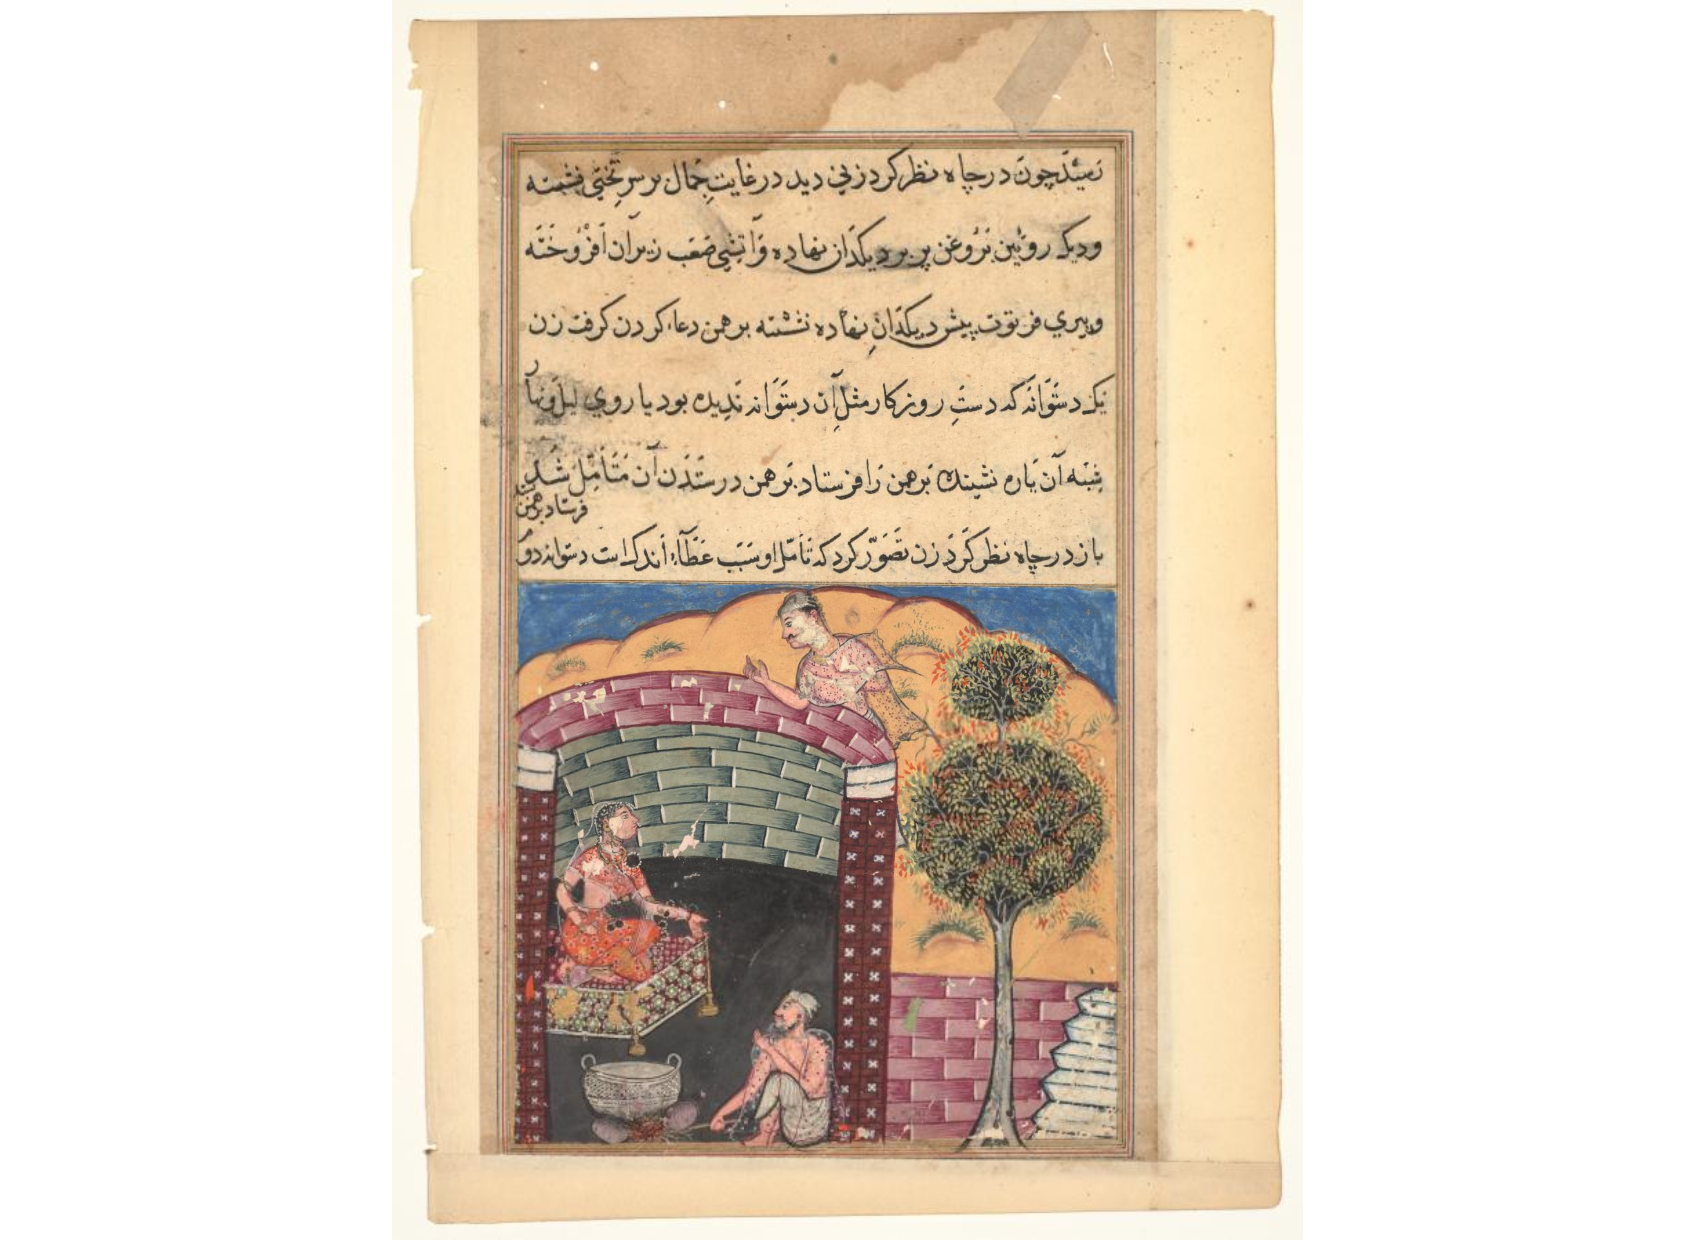 رسید چون در چاه نظر کرد زنی دید در غایتِ جمال بر سرِ تختی نشسته
و دیک رویین بروغن پر بر دیکدان نهاده و آتشی صعب زیر آن افروخته
و پیری فرتوت پیش دیکدان نهاده نشسته برهمن دعا کردن کرفت زن
یک دستوانه که دستِ روزکار مثلِ آن دستوانه ندیده بود یا روی لیل و نهار
شبه آن یاره نشینده برهمن را فرستاد برهمن در ستدن آن متأمل شد
فرستاد برهمن
باز در چاه نظر کرد زن تصور کرد که تأمل او سبب عطاء اندک است دستوانه دوم